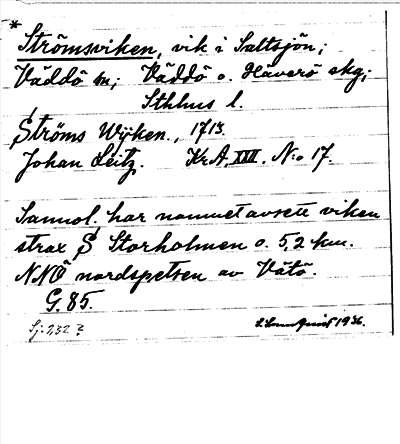 * Strömsviken, vik i Saltsjön;
Väddö sn; Väddö o. Häverö skg;
Sthlms l.
Ströms Wijken., 1713.
Johan Leitz. Kr.A. XVII. N:o 17.
Sannol. har namnet avsett viken
strax S Storholmen o. 5,2 km.
NNÖ nordspetsen av Vätö.
G. 85.
Sj: 232 ?
1936.